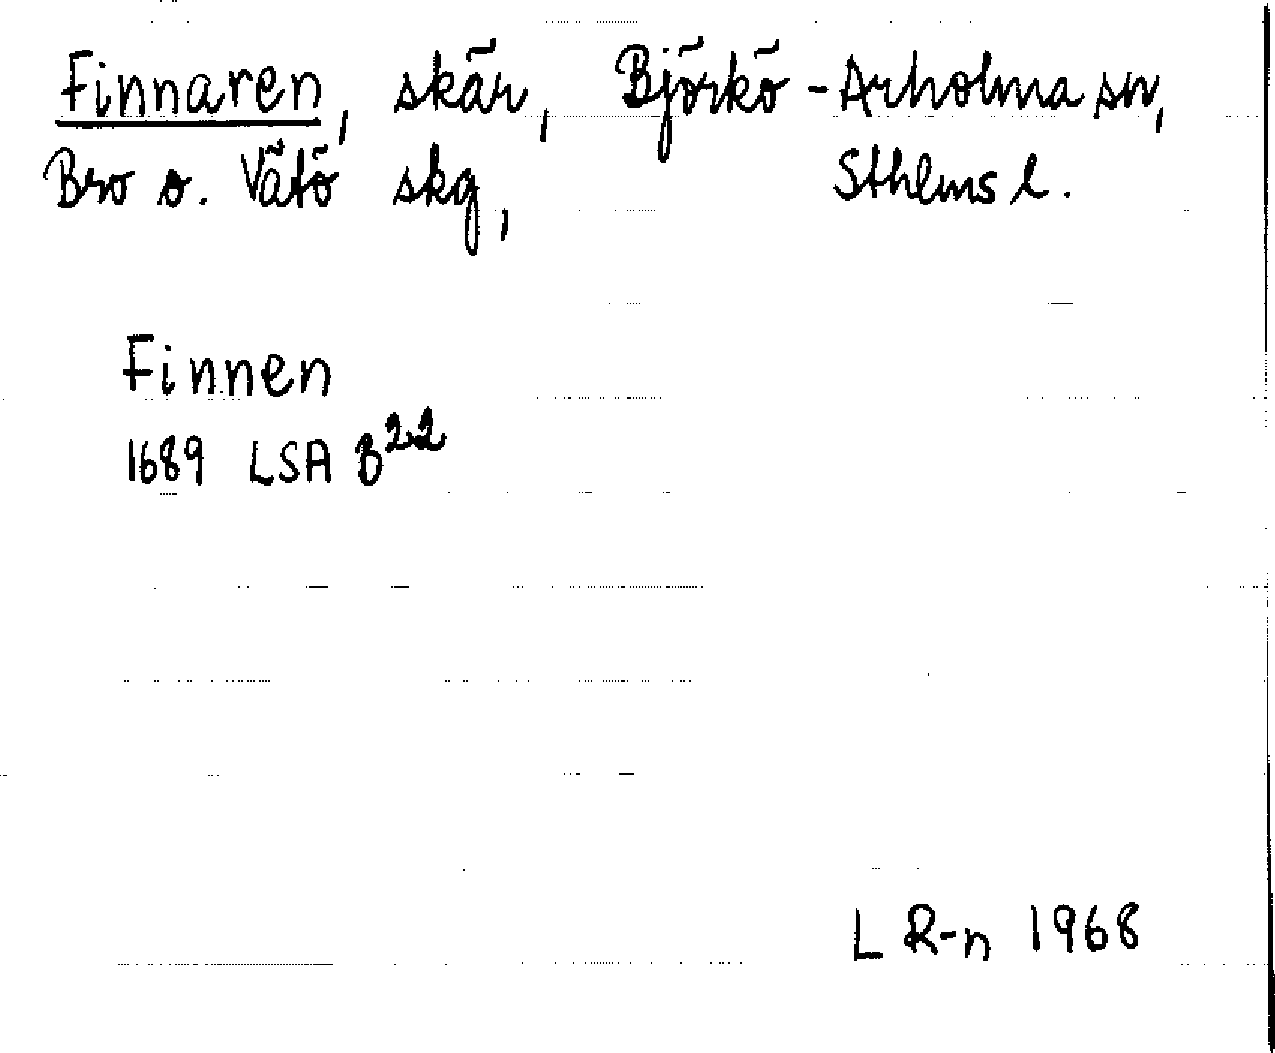 Finnaren, skär, Björkö-Arholma sn,
Bro o. Vätö skg, Sthlms l.
Finnen
1689 LSA B²²
L R-n 1968